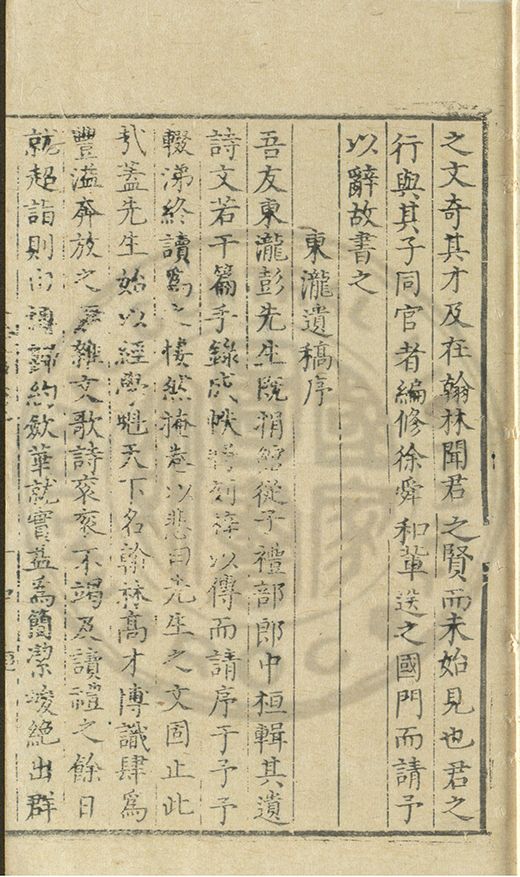 之文奇其才及在翰林聞君之賢而未始見也君之
行與其子同官者編修徐舜和輩送之國門而請予
以辭故書之
東瀧遺稿序
吾友東瀧彭先生既捐館從子禮部郎中桓輯其遺
詩文若干篇手錄成帙將刻梓以傳而請序于予予
輟涕終讀為之悽然掩卷以悲曰先生之文固止此
哉蓋先生始以經學魁天下名翰林高才博識肆為
豐溢奔放之 雜文歌詩衮衮不竭及讀禮之餘日
就超詣則 歸約斂華就實益為簡潔峻絶出群